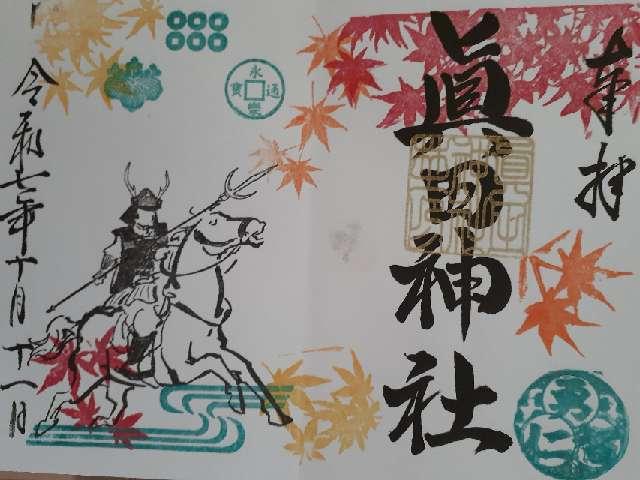 奉拝
眞田神社
令和七年十月十一日
永樂通寳